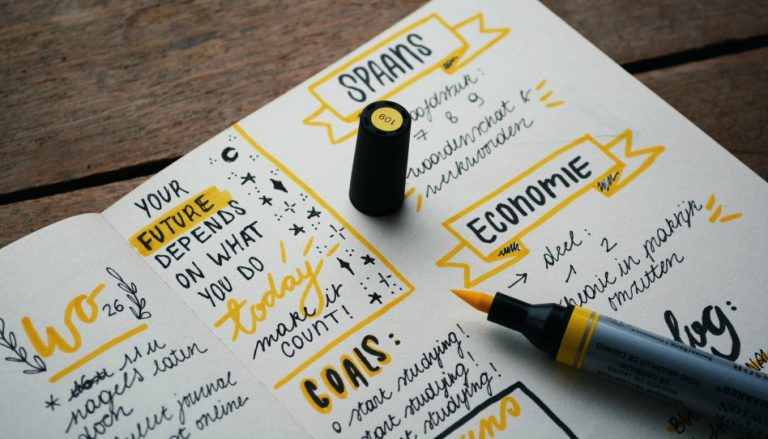 Wo
26
* 11 u
nagels laten
doen
bullet journal
online
YOUR
FUTURE
DEPENDS
ON WHAT
YOU DO
today
make it
COUNT!
GOALS:
o start studying!
start studying!
start studying!
SPAANS
hoofdstuk:
7 8 9
woordenschat &
werkwoorden
ECONOMIE
→ deel:
1 2
theorie in praktijk
omzetten
109